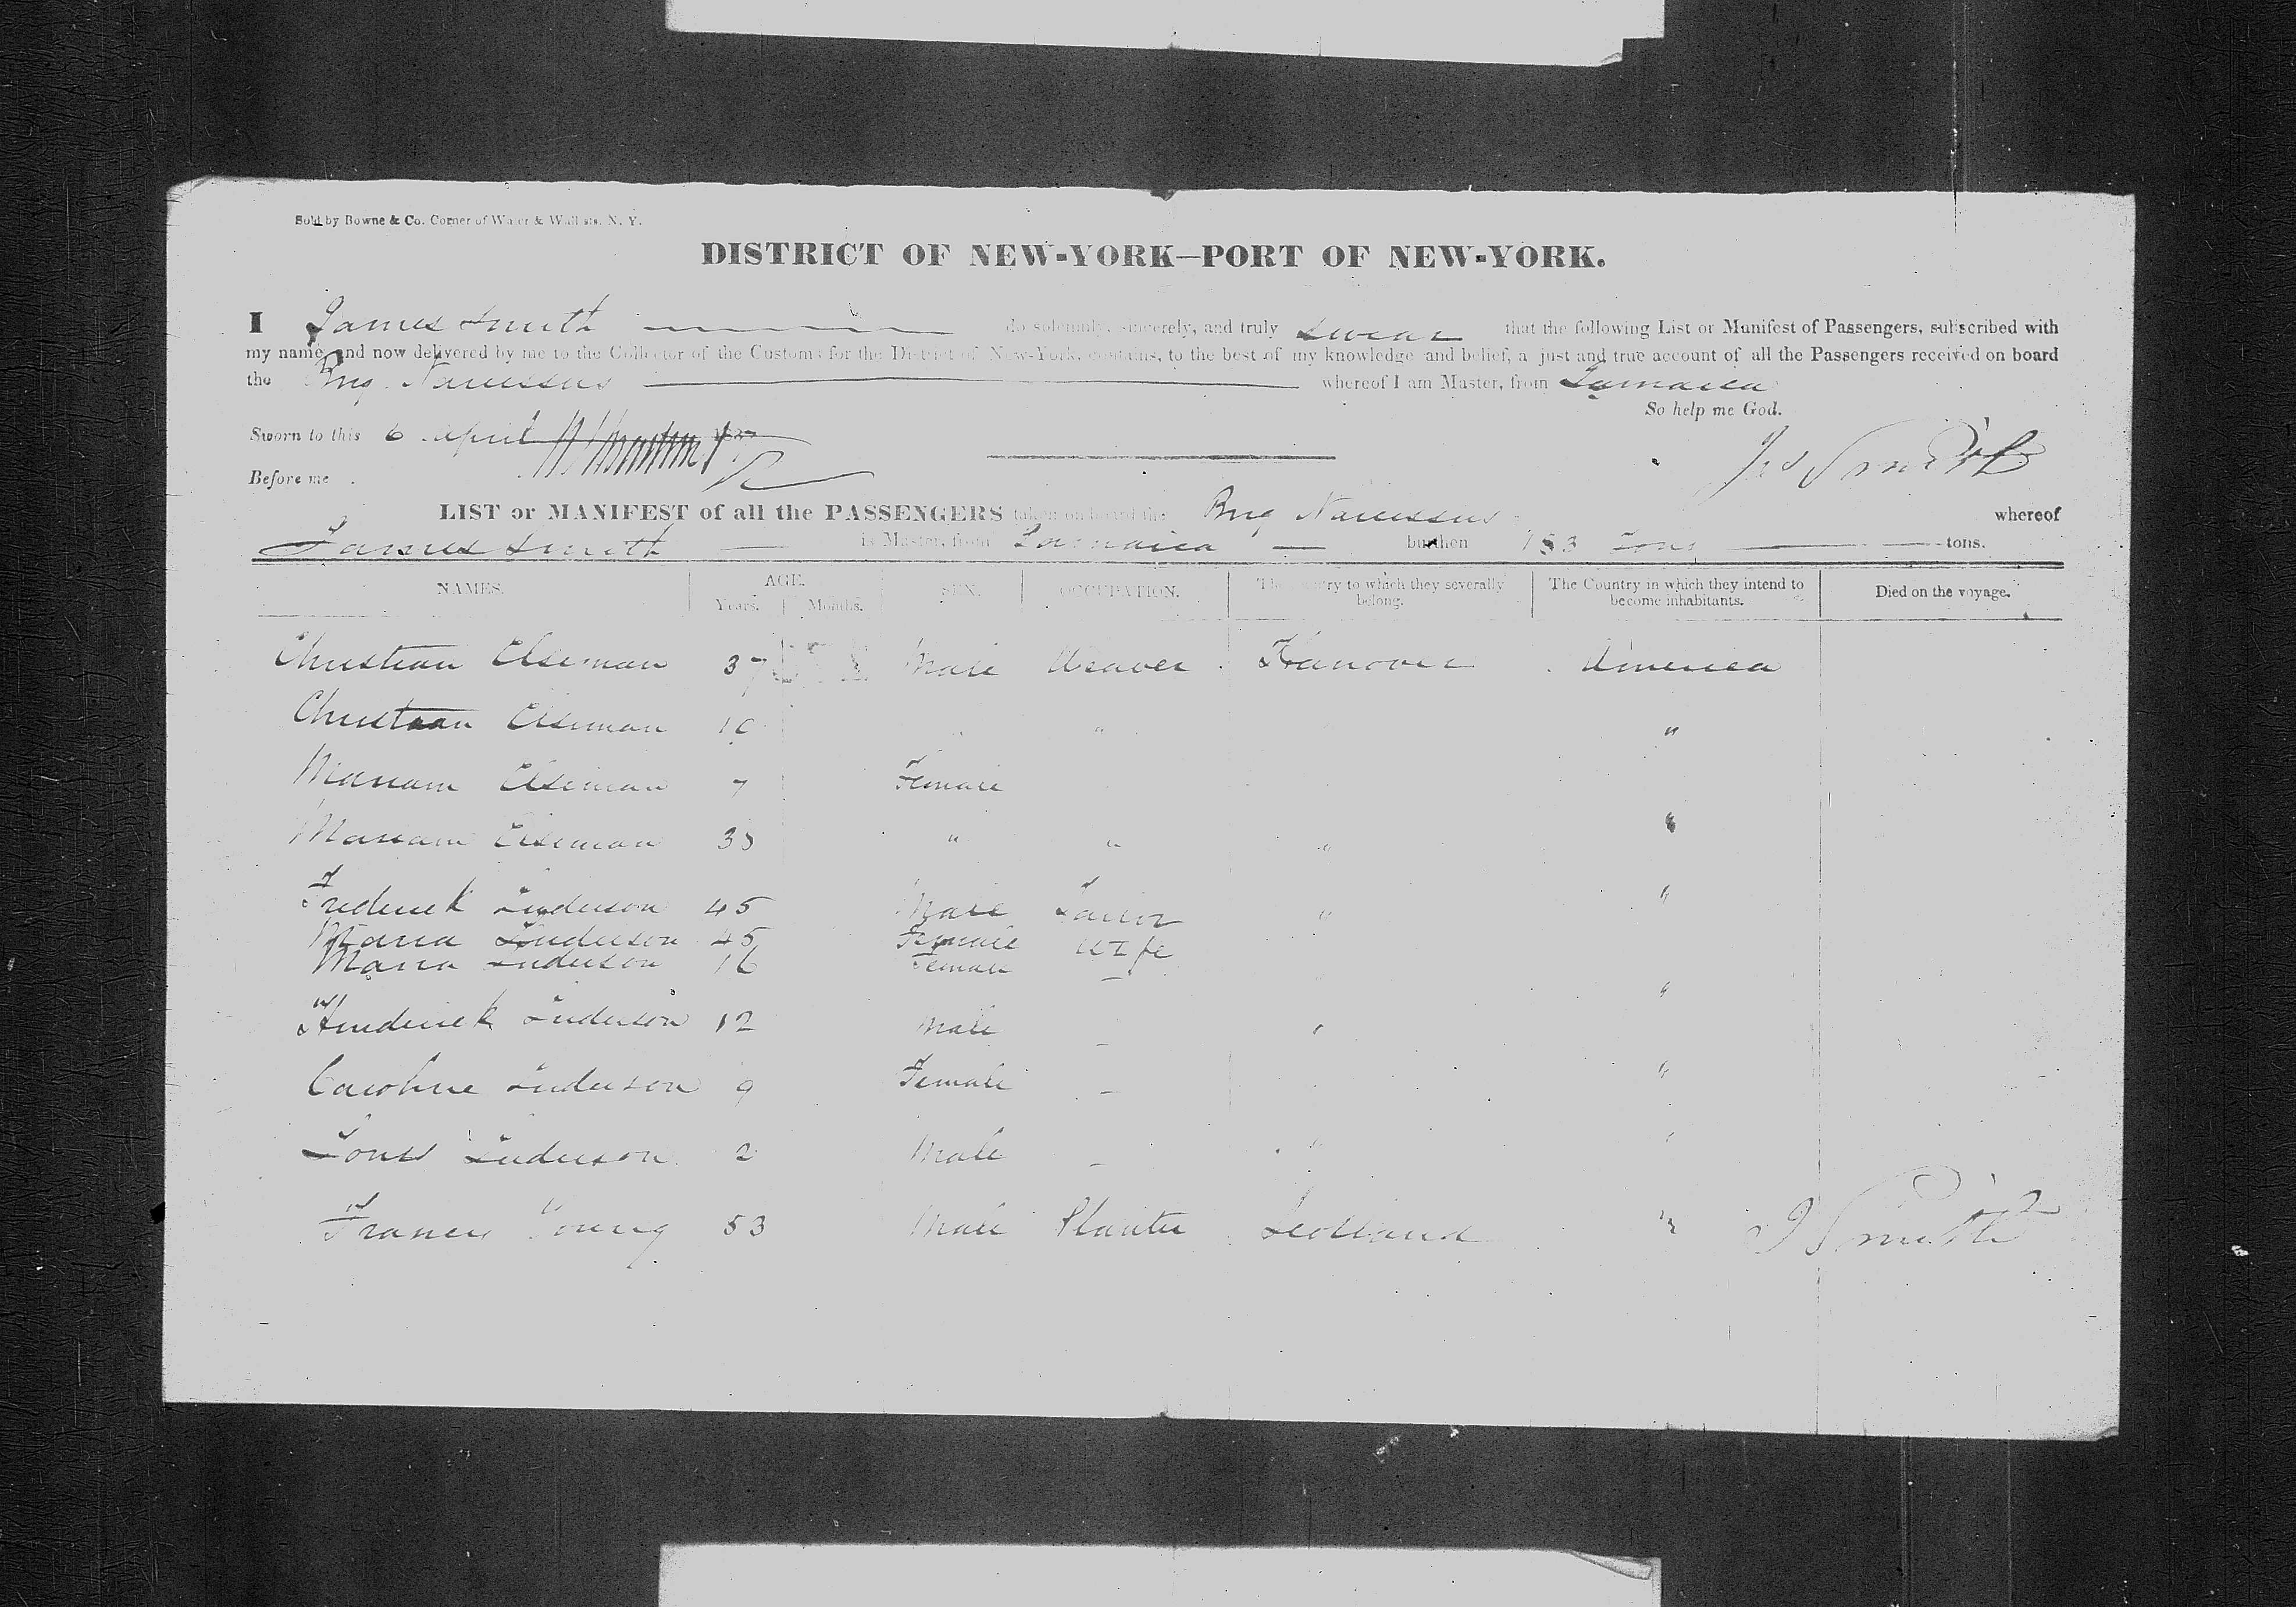 Sold by Bowne & Co. Corner of Water & Wall sts. N. Y.
DISTRICT OF NEW-YORK—PORT OF NEW-YORK.
I James Smith do solemnly, sincerely, and truly swear that the following List or Manifest of Passengers, subscribed with
my name, and now delivered by me to the Collector of the Customs for the District of New-York, contains, to the best of my knowledge and belief, a just and true account of all the Passengers received on board
the Brig Narcissus whereof I am Master, from Jamaica
So help me God.
Sworn to this 6 April 183
Before me
Jas Smith
LIST or MANIFEST of all the PASSENGERS taken on board the Brig Narcissus whereof
James Smith is Master, from Jamaica burthen 153 Tons tons.
NAMES. AGE. Years. Months. SEX. OCCUPATION. The Country to which they severally belong. The Country in which they intend to become inhabitants. Died on the voyage.
Christian Elseman 37 Male Weaver Hanover America
Christian Elseman 10 " "
Mariam Elseman 7 Female
Mariam Elseman 35 " " " "
Frederick Luderson 45 Male Tailor " "
Maria Luderson 45 Female Wife
Maria Luderson 16 Female –
Hendrick Luderson 12 Male – " "
Caroline Luderson 9 Female – "
Louis Luderson 2 Male – " "
Francis Young 53 Male Planter Scotland "
J Smith